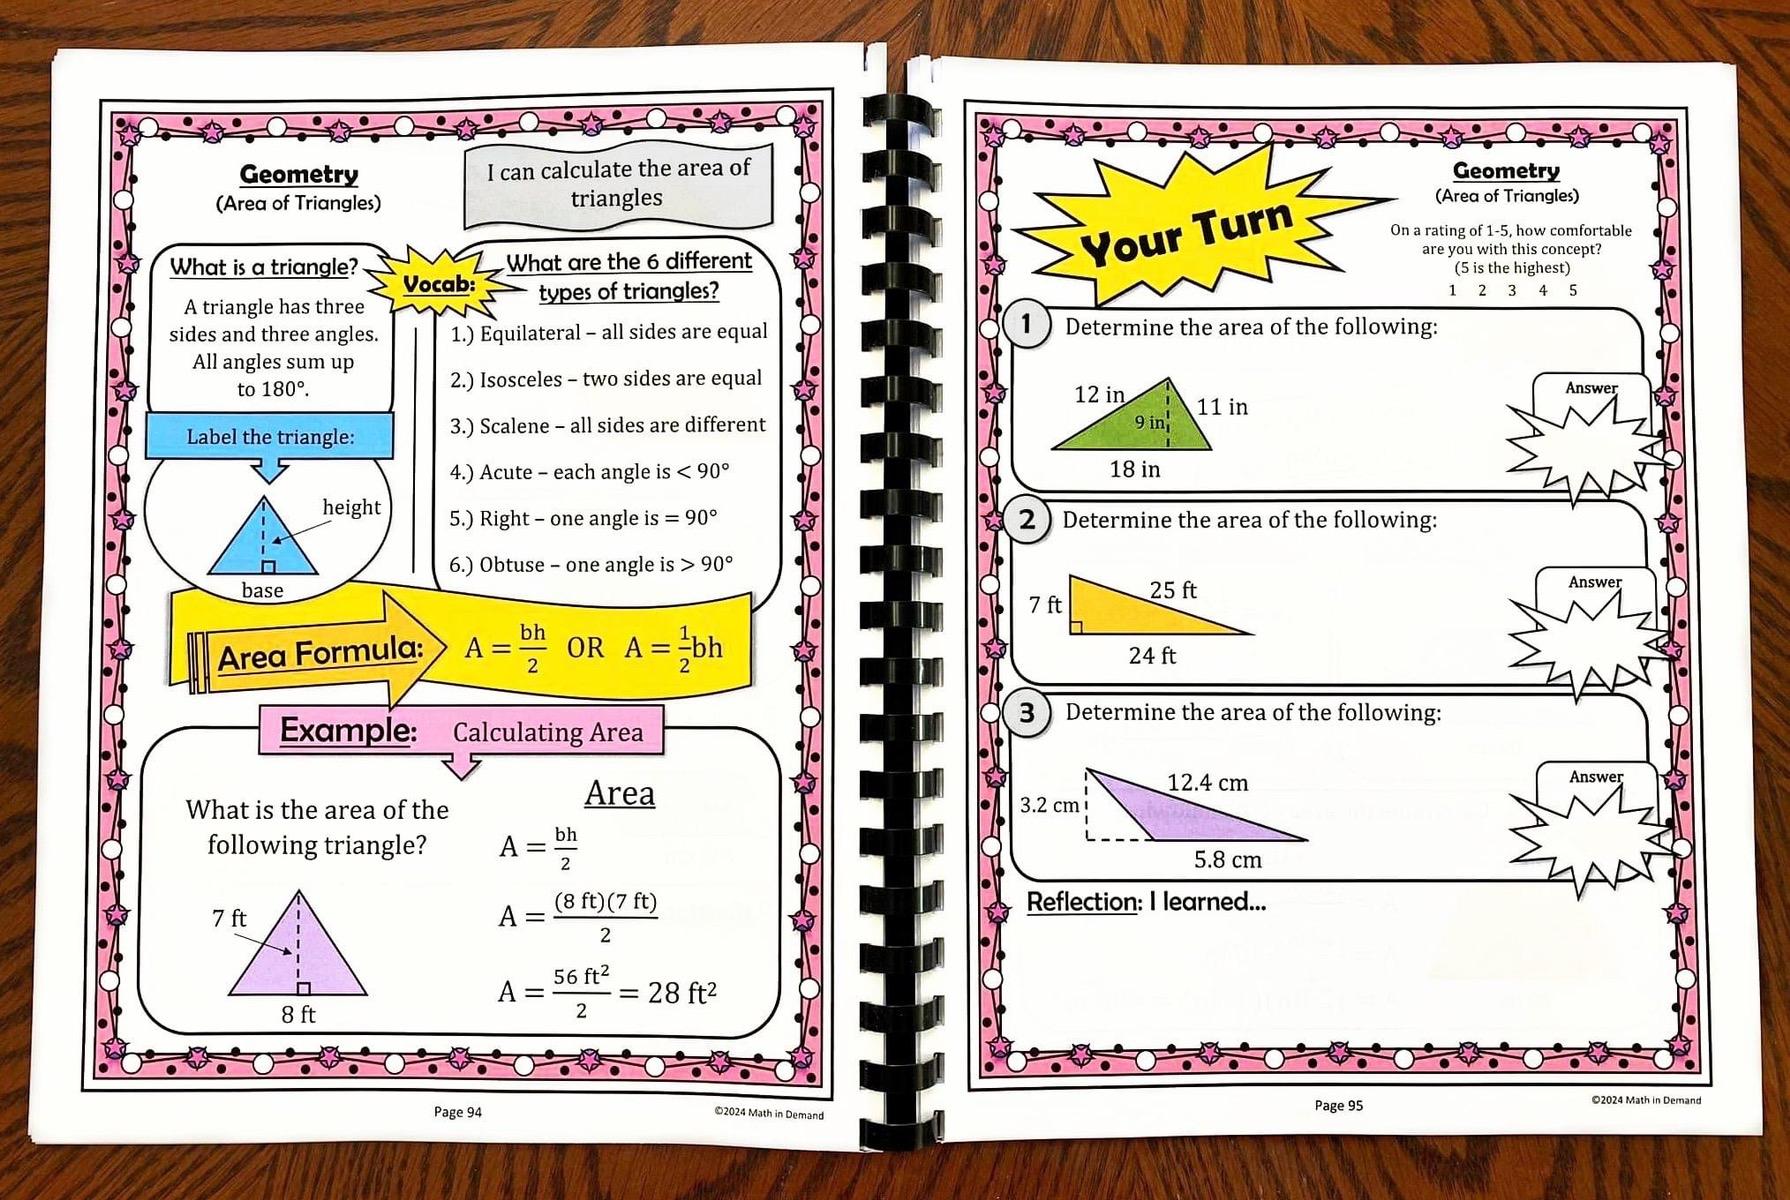 Geometry
(Area of Triangles)
I can calculate the area of
triangles
What is a triangle?
A triangle has three
sides and three angles.
All angles sum up
to 180°.
Vocab:
What are the 6 different
types of triangles?
1.) Equilateral – all sides are equal
2.) Isosceles – two sides are equal
3.) Scalene – all sides are different
4.) Acute – each angle is < 90°
5.) Right – one angle is = 90°
6.) Obtuse – one angle is > 90°
Label the triangle:
height
base
Area Formula:
A = bh/2 OR A = 1/2bh
Example: Calculating Area
What is the area of the
following triangle?
7 ft
8 ft
Area
A = bh/2
A = (8 ft)(7 ft)/2
A = 56 ft²/2 = 28 ft²
Page 94
©2024 Math in Demand
Your Turn
Geometry
(Area of Triangles)
On a rating of 1-5, how comfortable
are you with this concept?
(5 is the highest)
1 2 3 4 5
1 Determine the area of the following:
12 in
9 in
11 in
18 in
Answer
2 Determine the area of the following:
7 ft
25 ft
24 ft
Answer
3 Determine the area of the following:
3.2 cm
12.4 cm
5.8 cm
Answer
Reflection: I learned...
Page 95
©2024 Math in Demand